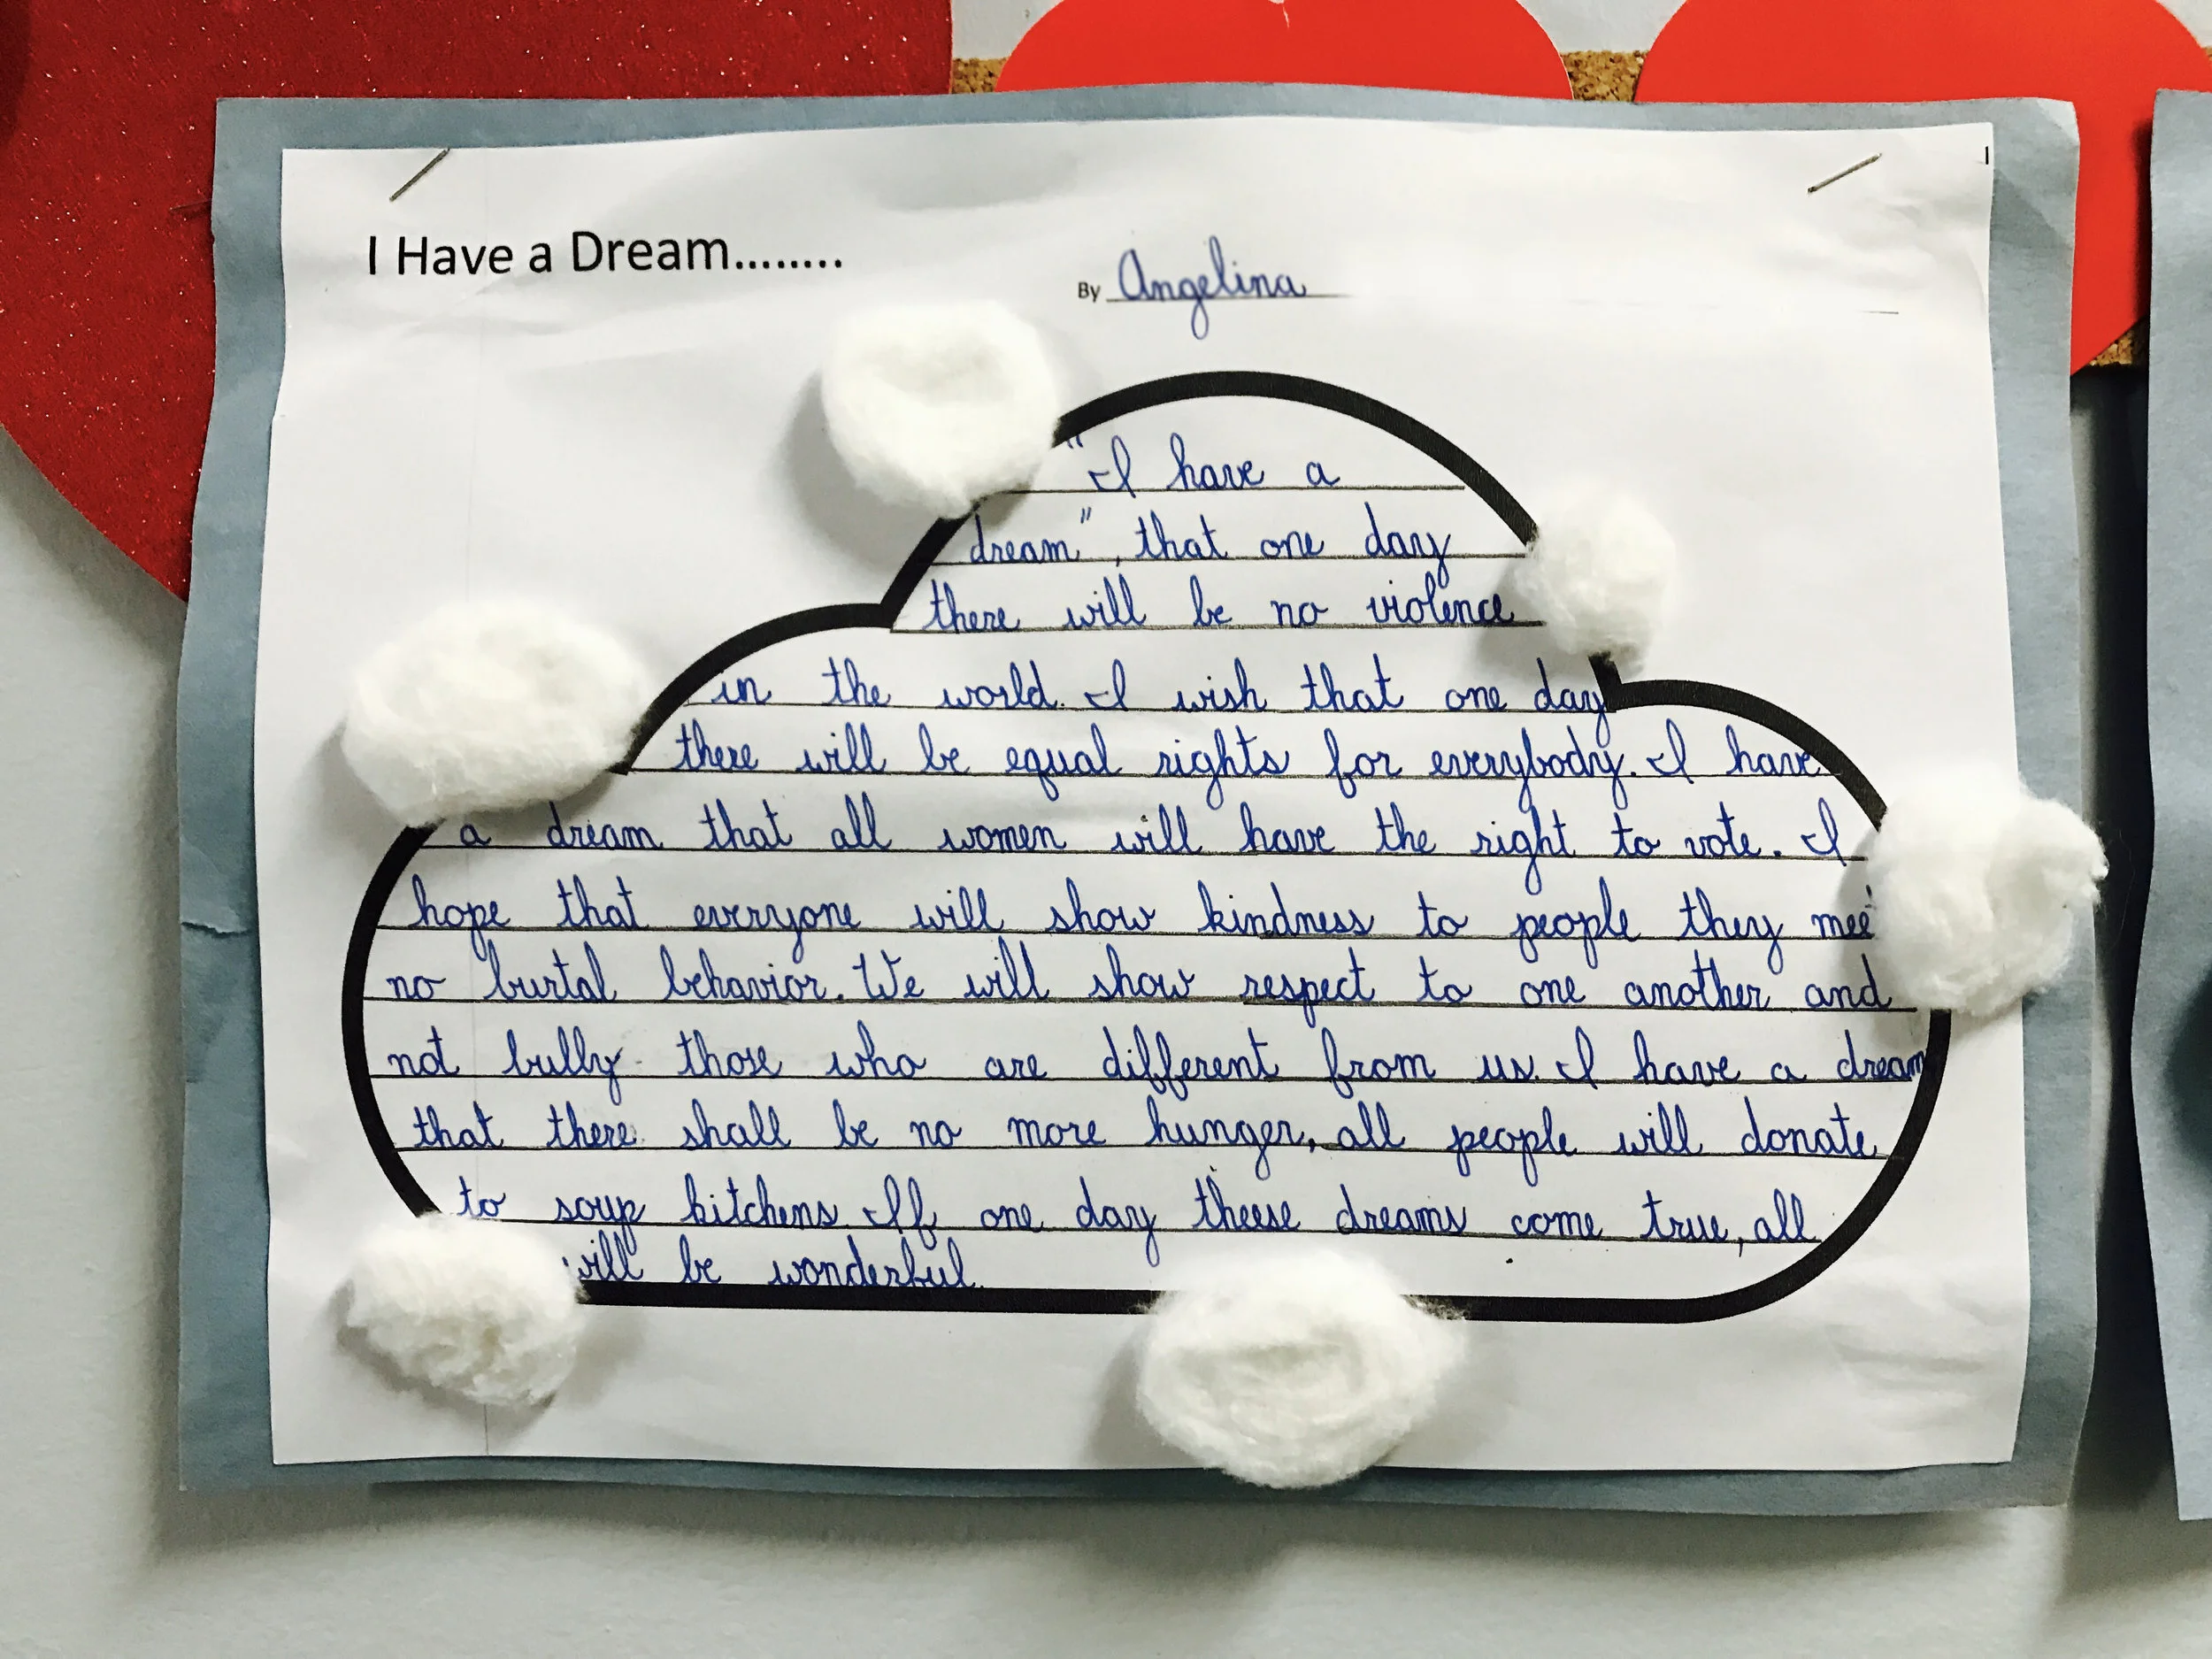 I Have a Dream........
By Angelina
"I have a
dream", that one day
there will be no violence
in the world. I wish that one day
there will be equal rights for everybody. I have
a dream that all women will have the right to vote. I
hope that everyone will show kindness to people they mee
no burtal behavior. We will show respect to one another and
not bully those who are different from us. I have a dream
that there shall be no more hunger, all people will donate
to soup kitchens. If one day theese dreams come true, all
will be wonderful.